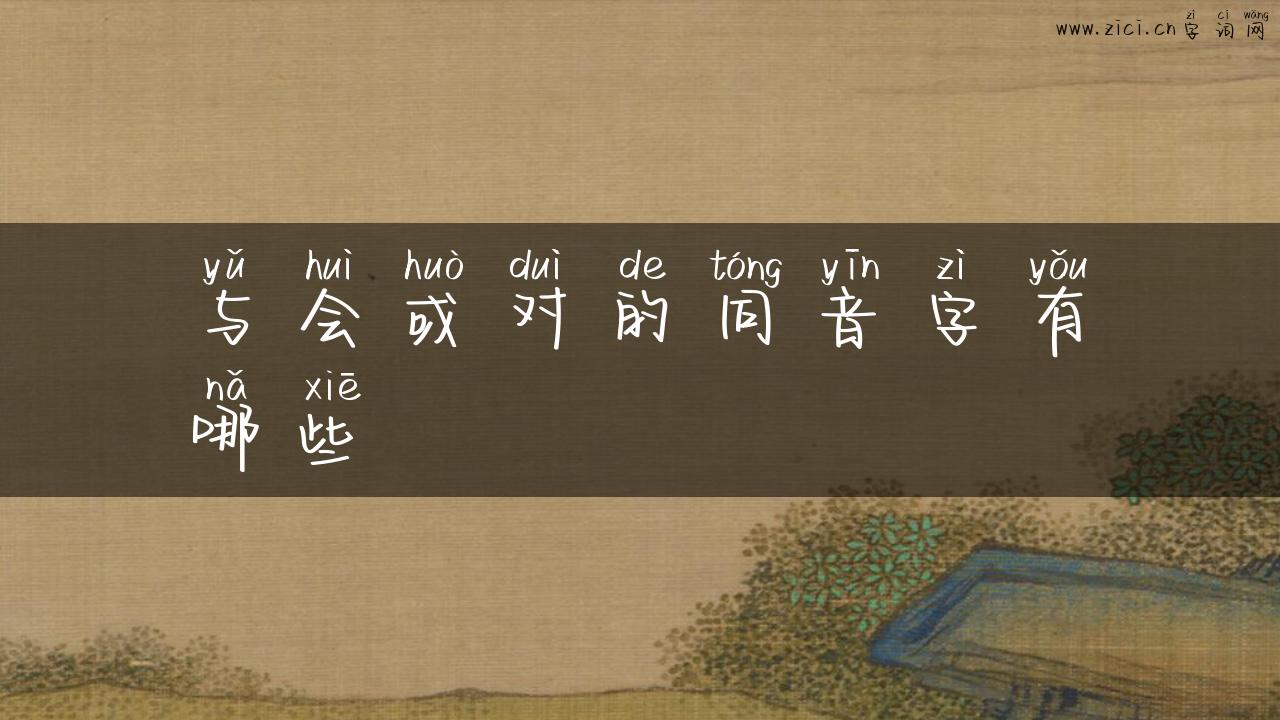 zì cí wǎng
www.zici.cn 字词网
yǔ huì huò duì de tóng yīn zì yǒu
与会或对的同音字有
nǎ xiē
哪些